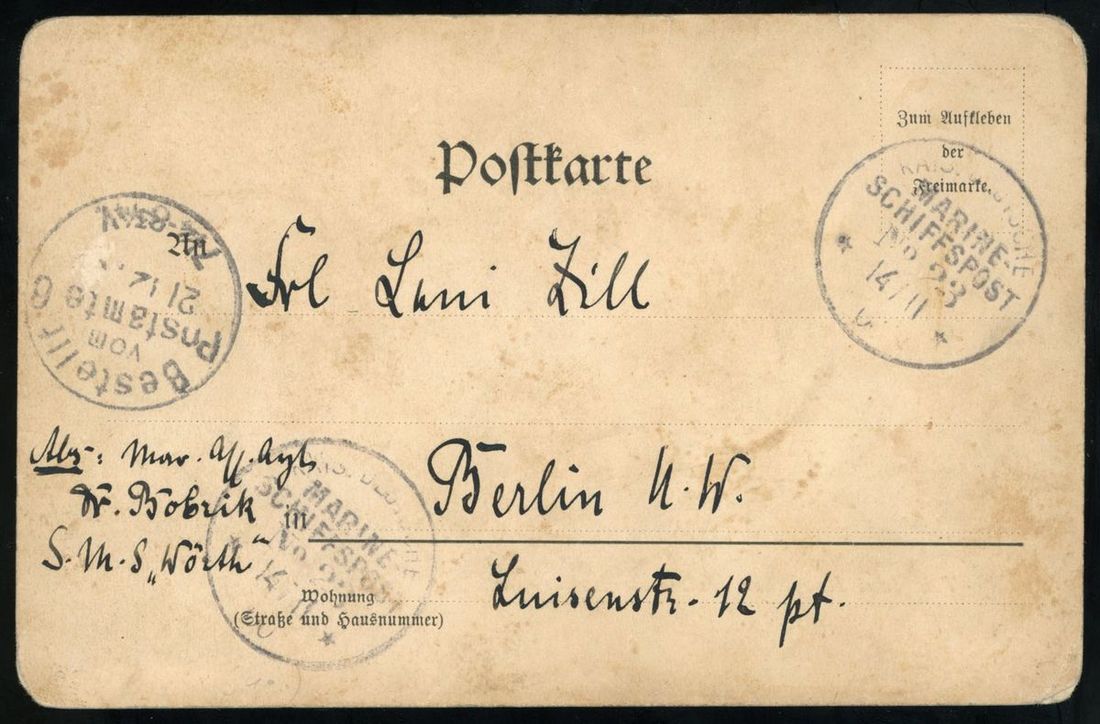 Zum Aufkleben
der
Freimarke.
Postkarte
KAIS. DEUTSCHE
MARINE-
SCHIFFSPOST
No 23
14/11
An
Frl Leni Zill
Bestellt
vom
Postamte 6
21/12
7¼-8¼V
Abs: Mar. Ass. Arzt
Dr. Bobrik
S.M.S „Wörth“
in
Berlin N.W.
KAIS. DEUTSCHE
MARINE-
SCHIFFSPOST
No
14/11
Wohnung
(Straße und Hausnummer)
Luisenstr. 12 pt.